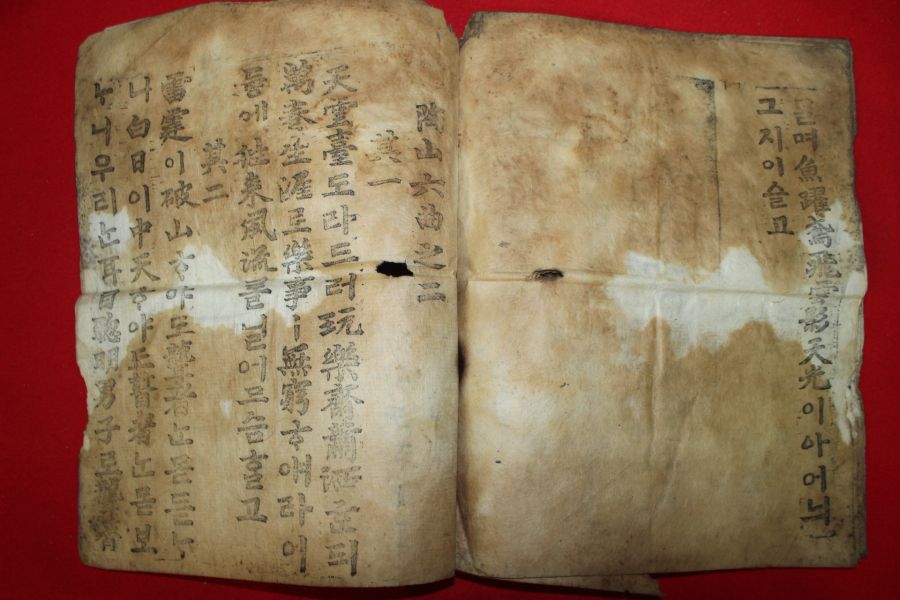 믈며魚躍鳶飛雲影天光이아어늬
그지이슬고
陶山六曲之二
其一
天雲臺도라드러玩樂齋蕭洒ᄒᆞᆫ듸
萬卷生涯로樂事ㅣ無窮ᄒᆞ얘라이
듕에往來風流를닐어므슴ᄒᆞᆯ고
其二
雷霆이破山ᄒᆞ야도聾者ᄂᆞᆫ몯듣ᄂᆞ
니白日이中天ᄒᆞ야도瞽者ᄂᆞᆫ몯보
ᄂᆞ니우리ᄂᆞᆫ耳目聰明男子로聾瞽